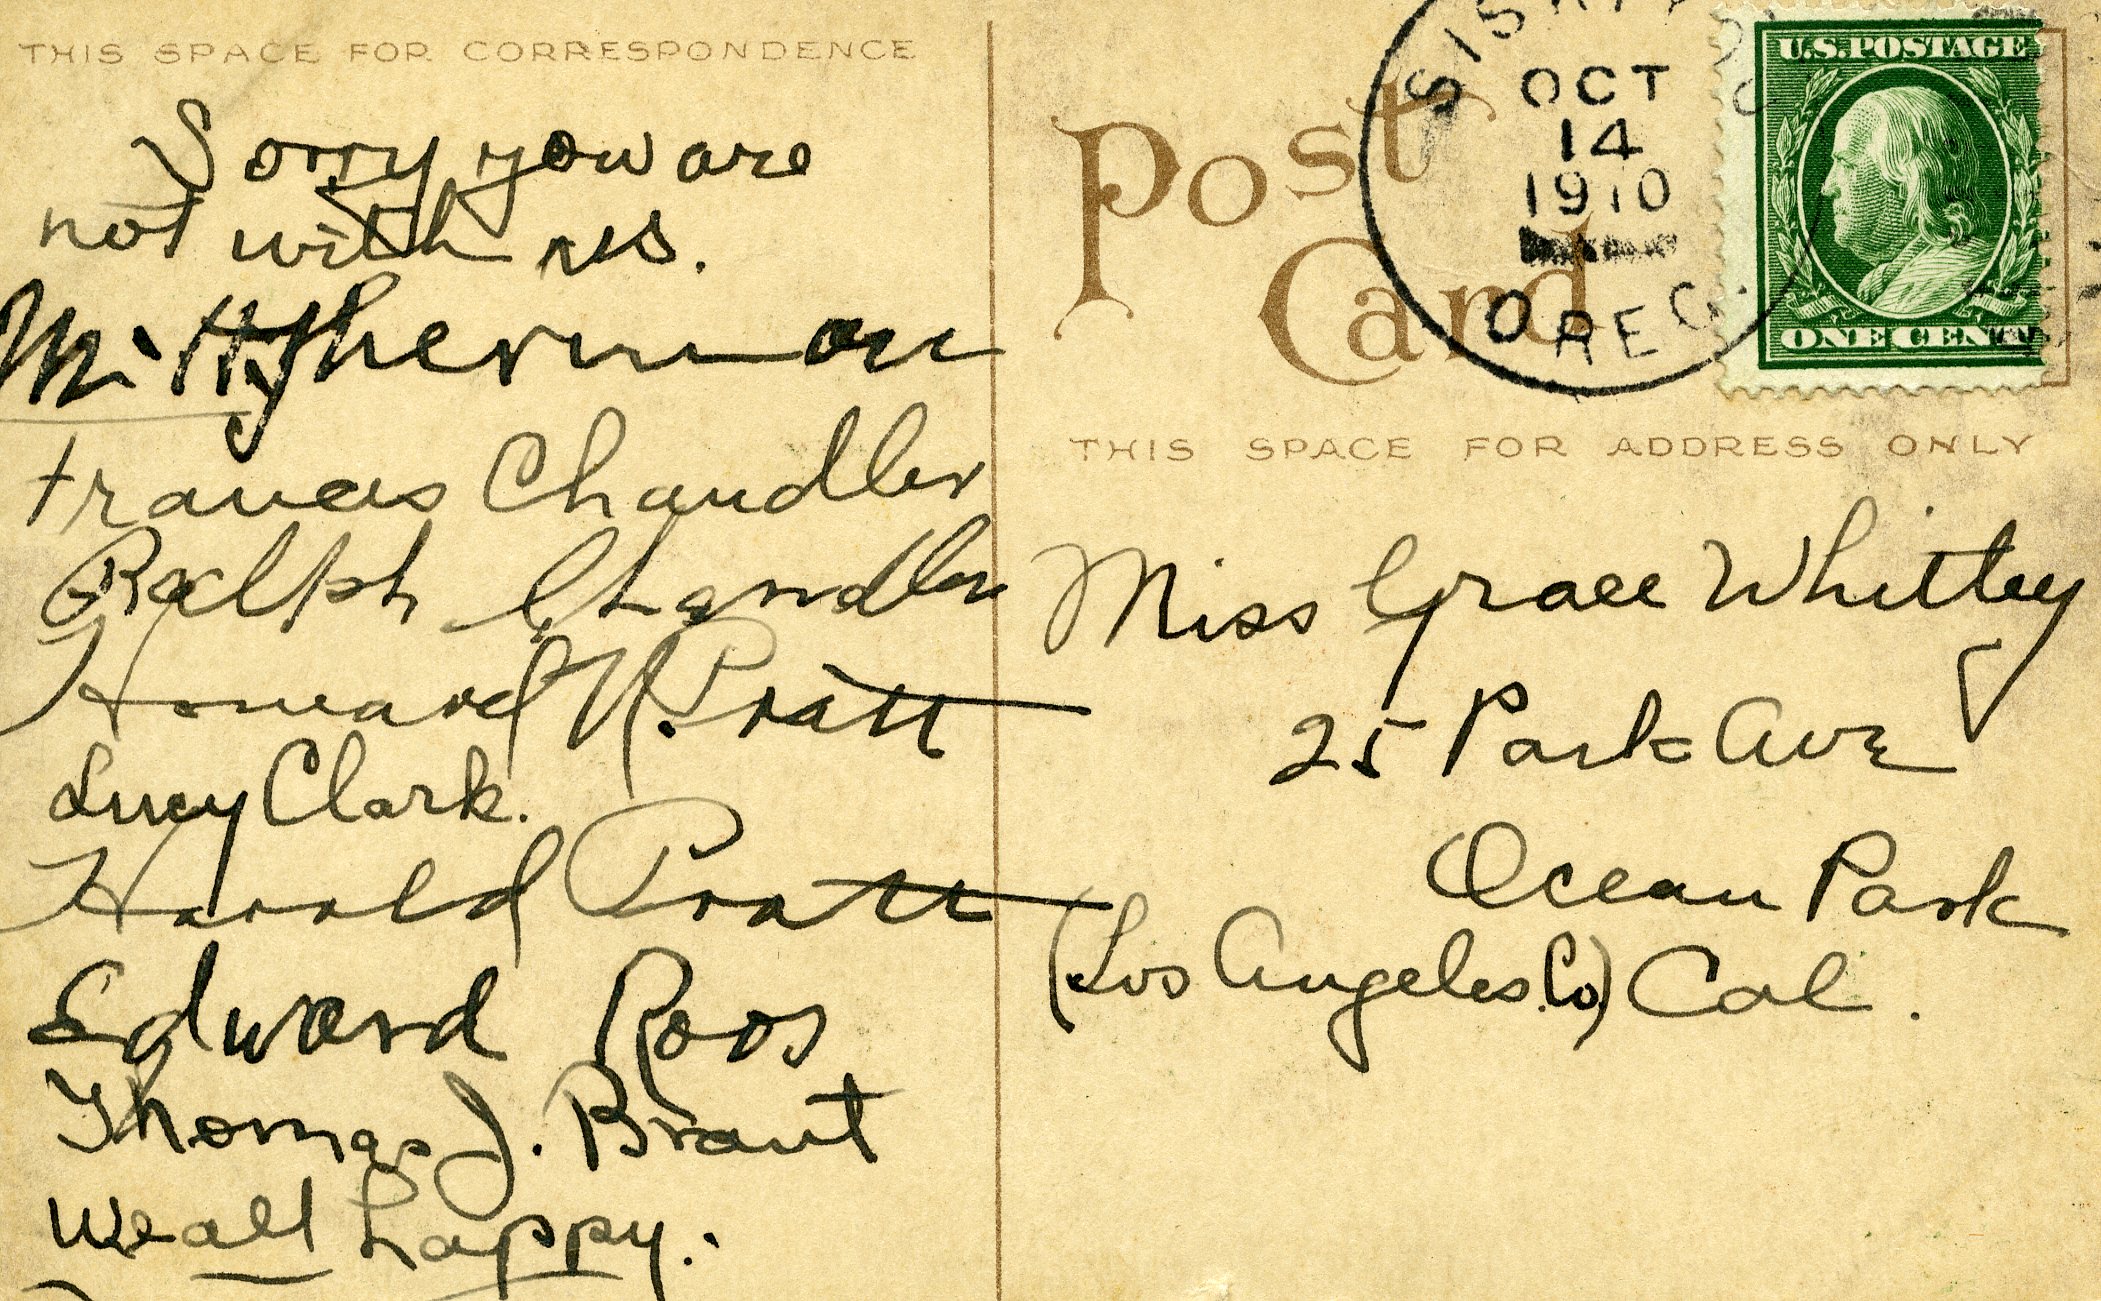 THIS SPACE FOR CORRESPONDENCE
Sorry you are
not with us.
Frances Chandler
Ralph Chandler
Howard N. Pratt
Lucy Clark.
Harold Pratt
Edward Roos
Thomas J. Brant
We all happy.
Post
Card
OCT
14
1910
OREG.
U.S. POSTAGE
ONE CENT
THIS SPACE FOR ADDRESS ONLY
Miss Grace Whitley
25 Park Ave
Ocean Park
(Los Angeles Co) Cal.